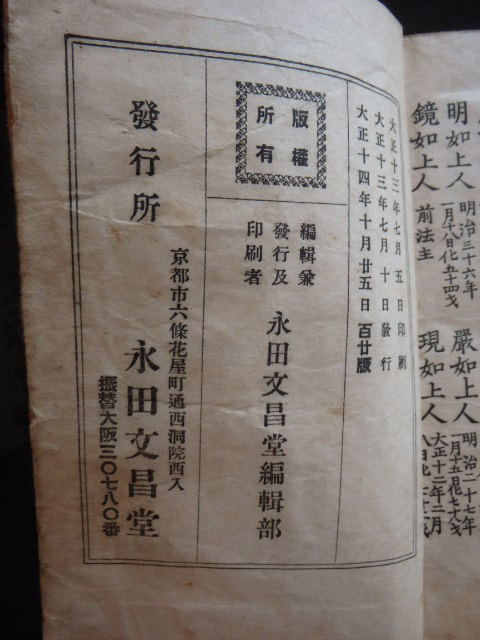 明如上人
明治三十六年
一月十八日化五十四才
鏡如上人
前法主
嚴如上人
明治二十七年
一月十五日化七十八才
現如上人
大正十二年二月
大正十三年七月五日印刷
大正十三年七月十日發行
大正十四年十月廿五日百廿版
版權
所有
編輯兼
發行及
印刷者
永田文昌堂編輯部
發行所
京都市六條花屋町通西洞院西入
永田文昌堂
振替大阪三〇七八〇番